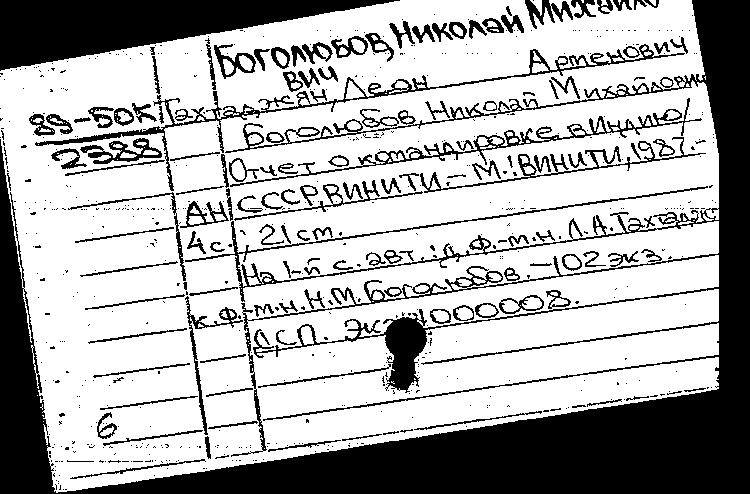 БОГОЛЮБОВ, НИКОЛАЙ МИХАЙЛО
ВИЧ
89-БОК Тахтаджян, Леон Арменович
2388 Боголюбов, Николай Михайлович
Отчет о командировке в Индию/
АН СССР, ВИНИТИ.- М.: ВИНИТИ, 1987.-
4с.; 21 см.
На 1-й с. авт.: д.ф.-м.н. Л.А.Тахтадж
к.ф.-м.н. Н.М.Боголюбов. -102 экз.
ДСП. 000008.
6